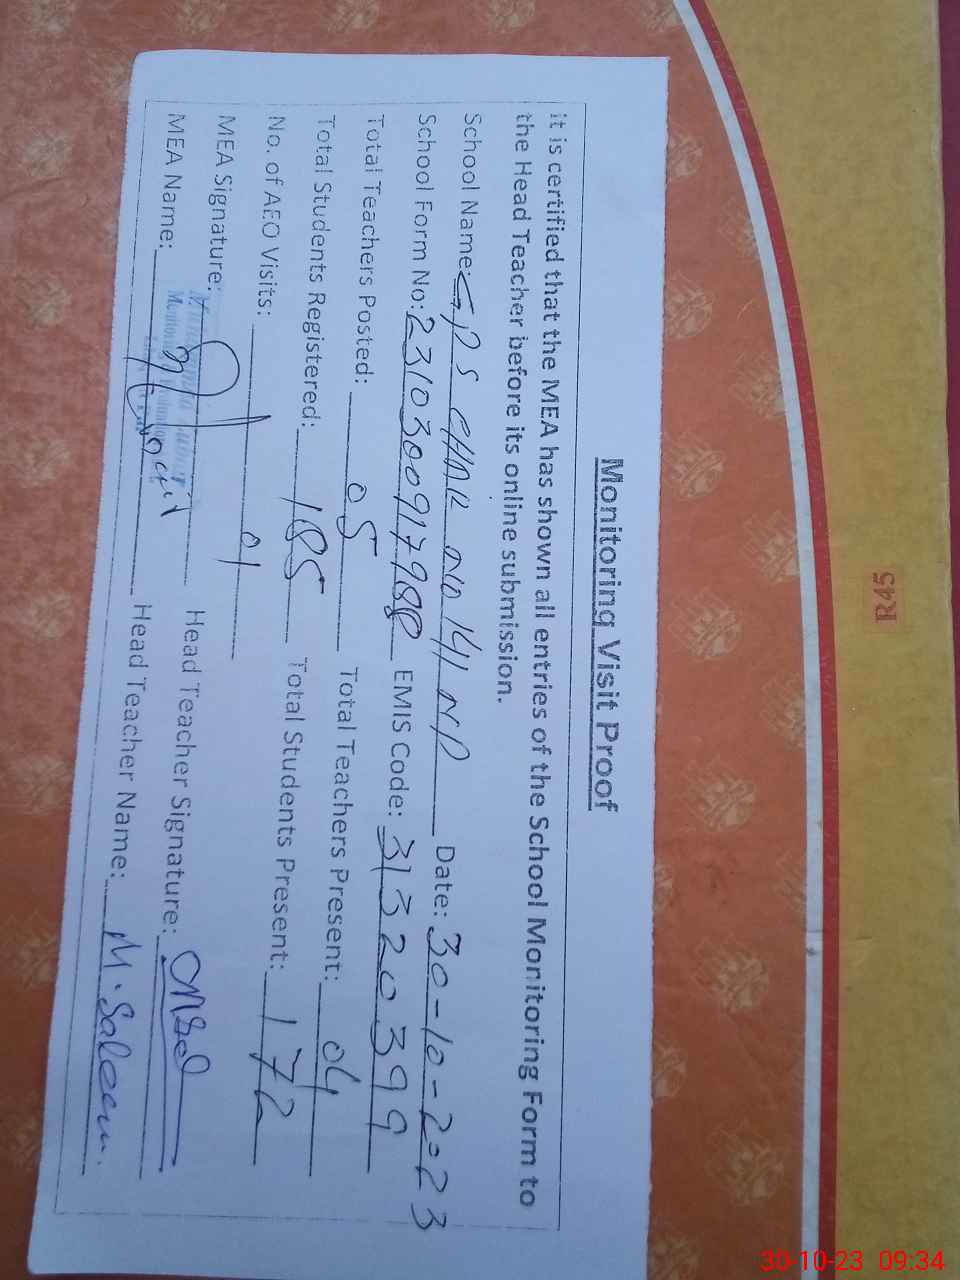 R45
Monitoring Visit Proof
it is certified that the MEA has shown all entries of the School Monitoring Form to
the Head Teacher before its online submission.
School Name: GPS CHAK NO 141 NP Date: 30-10-2023
School Form No: 2310300917988 EMIS Code: 31320399
Total Teachers Posted: 05 Total Teachers Present: 04
Total Students Registered: 185 Total Students Present: 172
No. of AEO Visits: 01
MEA Signature: Head Teacher Signature:
MEA Name: Head Teacher Name: M. Saleem.
30-10-23 09:34